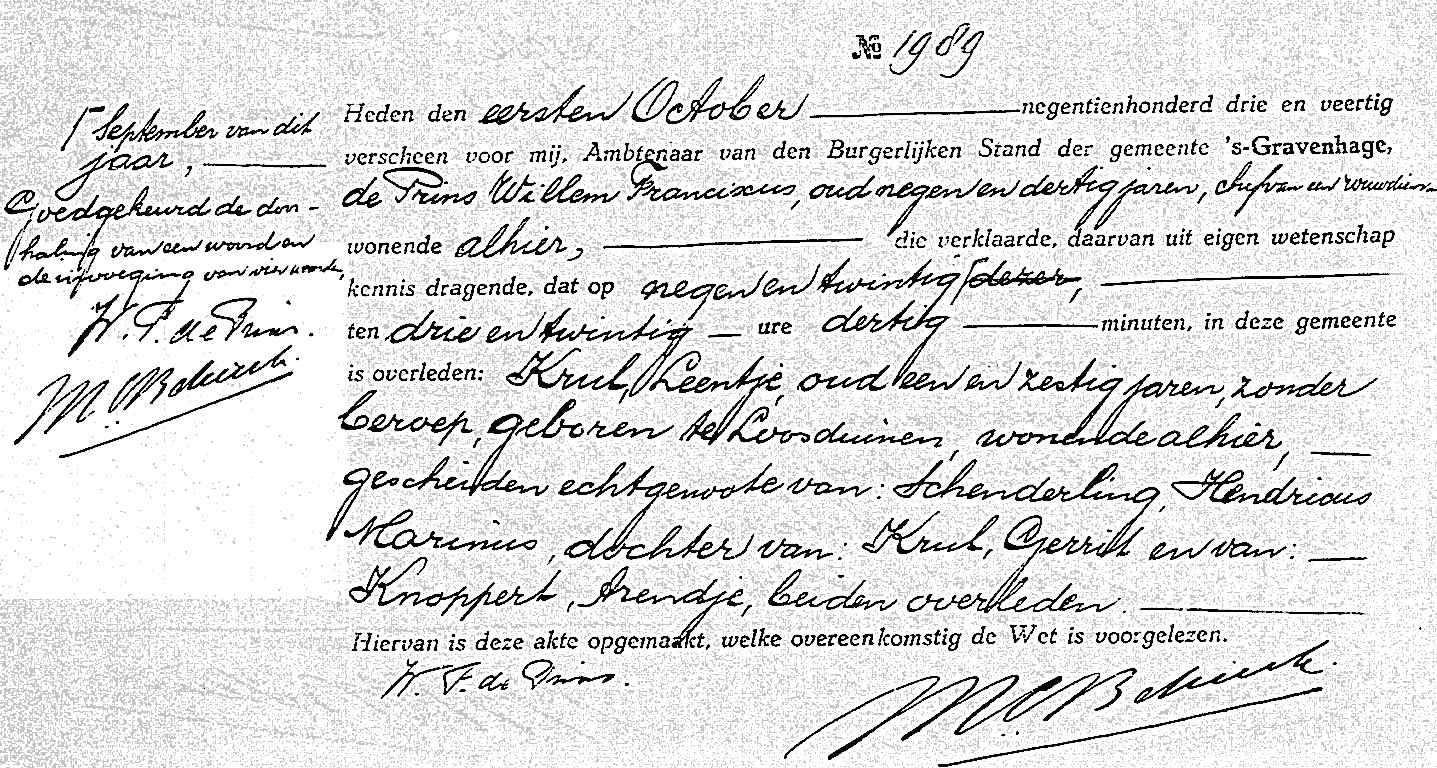 № 1989
Heden den eersten October negentienhonderd drie en veertig
verscheen voor mij, Ambtenaar van den Burgerlijken Stand der gemeente 's-Gravenhage,
de Prins Willem Franciscus, oud negen en dertig jaren, chef van een
wonende alhier, die verklaarde, daarvan uit eigen wetenschap
kennis dragende, dat op negen en twintig ⌈dezer,
ten drie en twintig ure dertig minuten, in deze gemeente
is overleden: Krul, Leentje, oud een en zestig jaren, zonder
beroep, geboren te Loosduinen, wonende alhier,
gescheiden echtgenoote van: Schenderling, Hendricus
Marinus, dochter van: Krul, Gerrit en van:
Knoppert, Arendje, beiden overleden.
Hiervan is deze akte opgemaakt, welke overeenkomstig de Wet is voorgelezen.
W. F. de Prins.
⌈September van dit
jaar,
Goedgekeurd de door-
haling van een woord en
de bijvoeging van vier woorden,
W. F. de Prins.